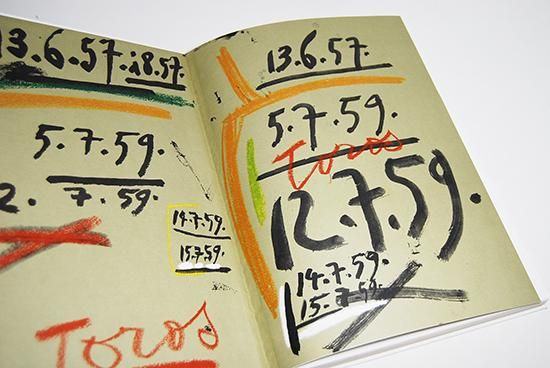 13.6.57.
18.57.
5.7.59.
7.59.
2.
14.7.59.
15.7.59.
Toros
13.6.57.
5.7.59.
Toros
12.7.59.
14.7.59.
15.7.59.